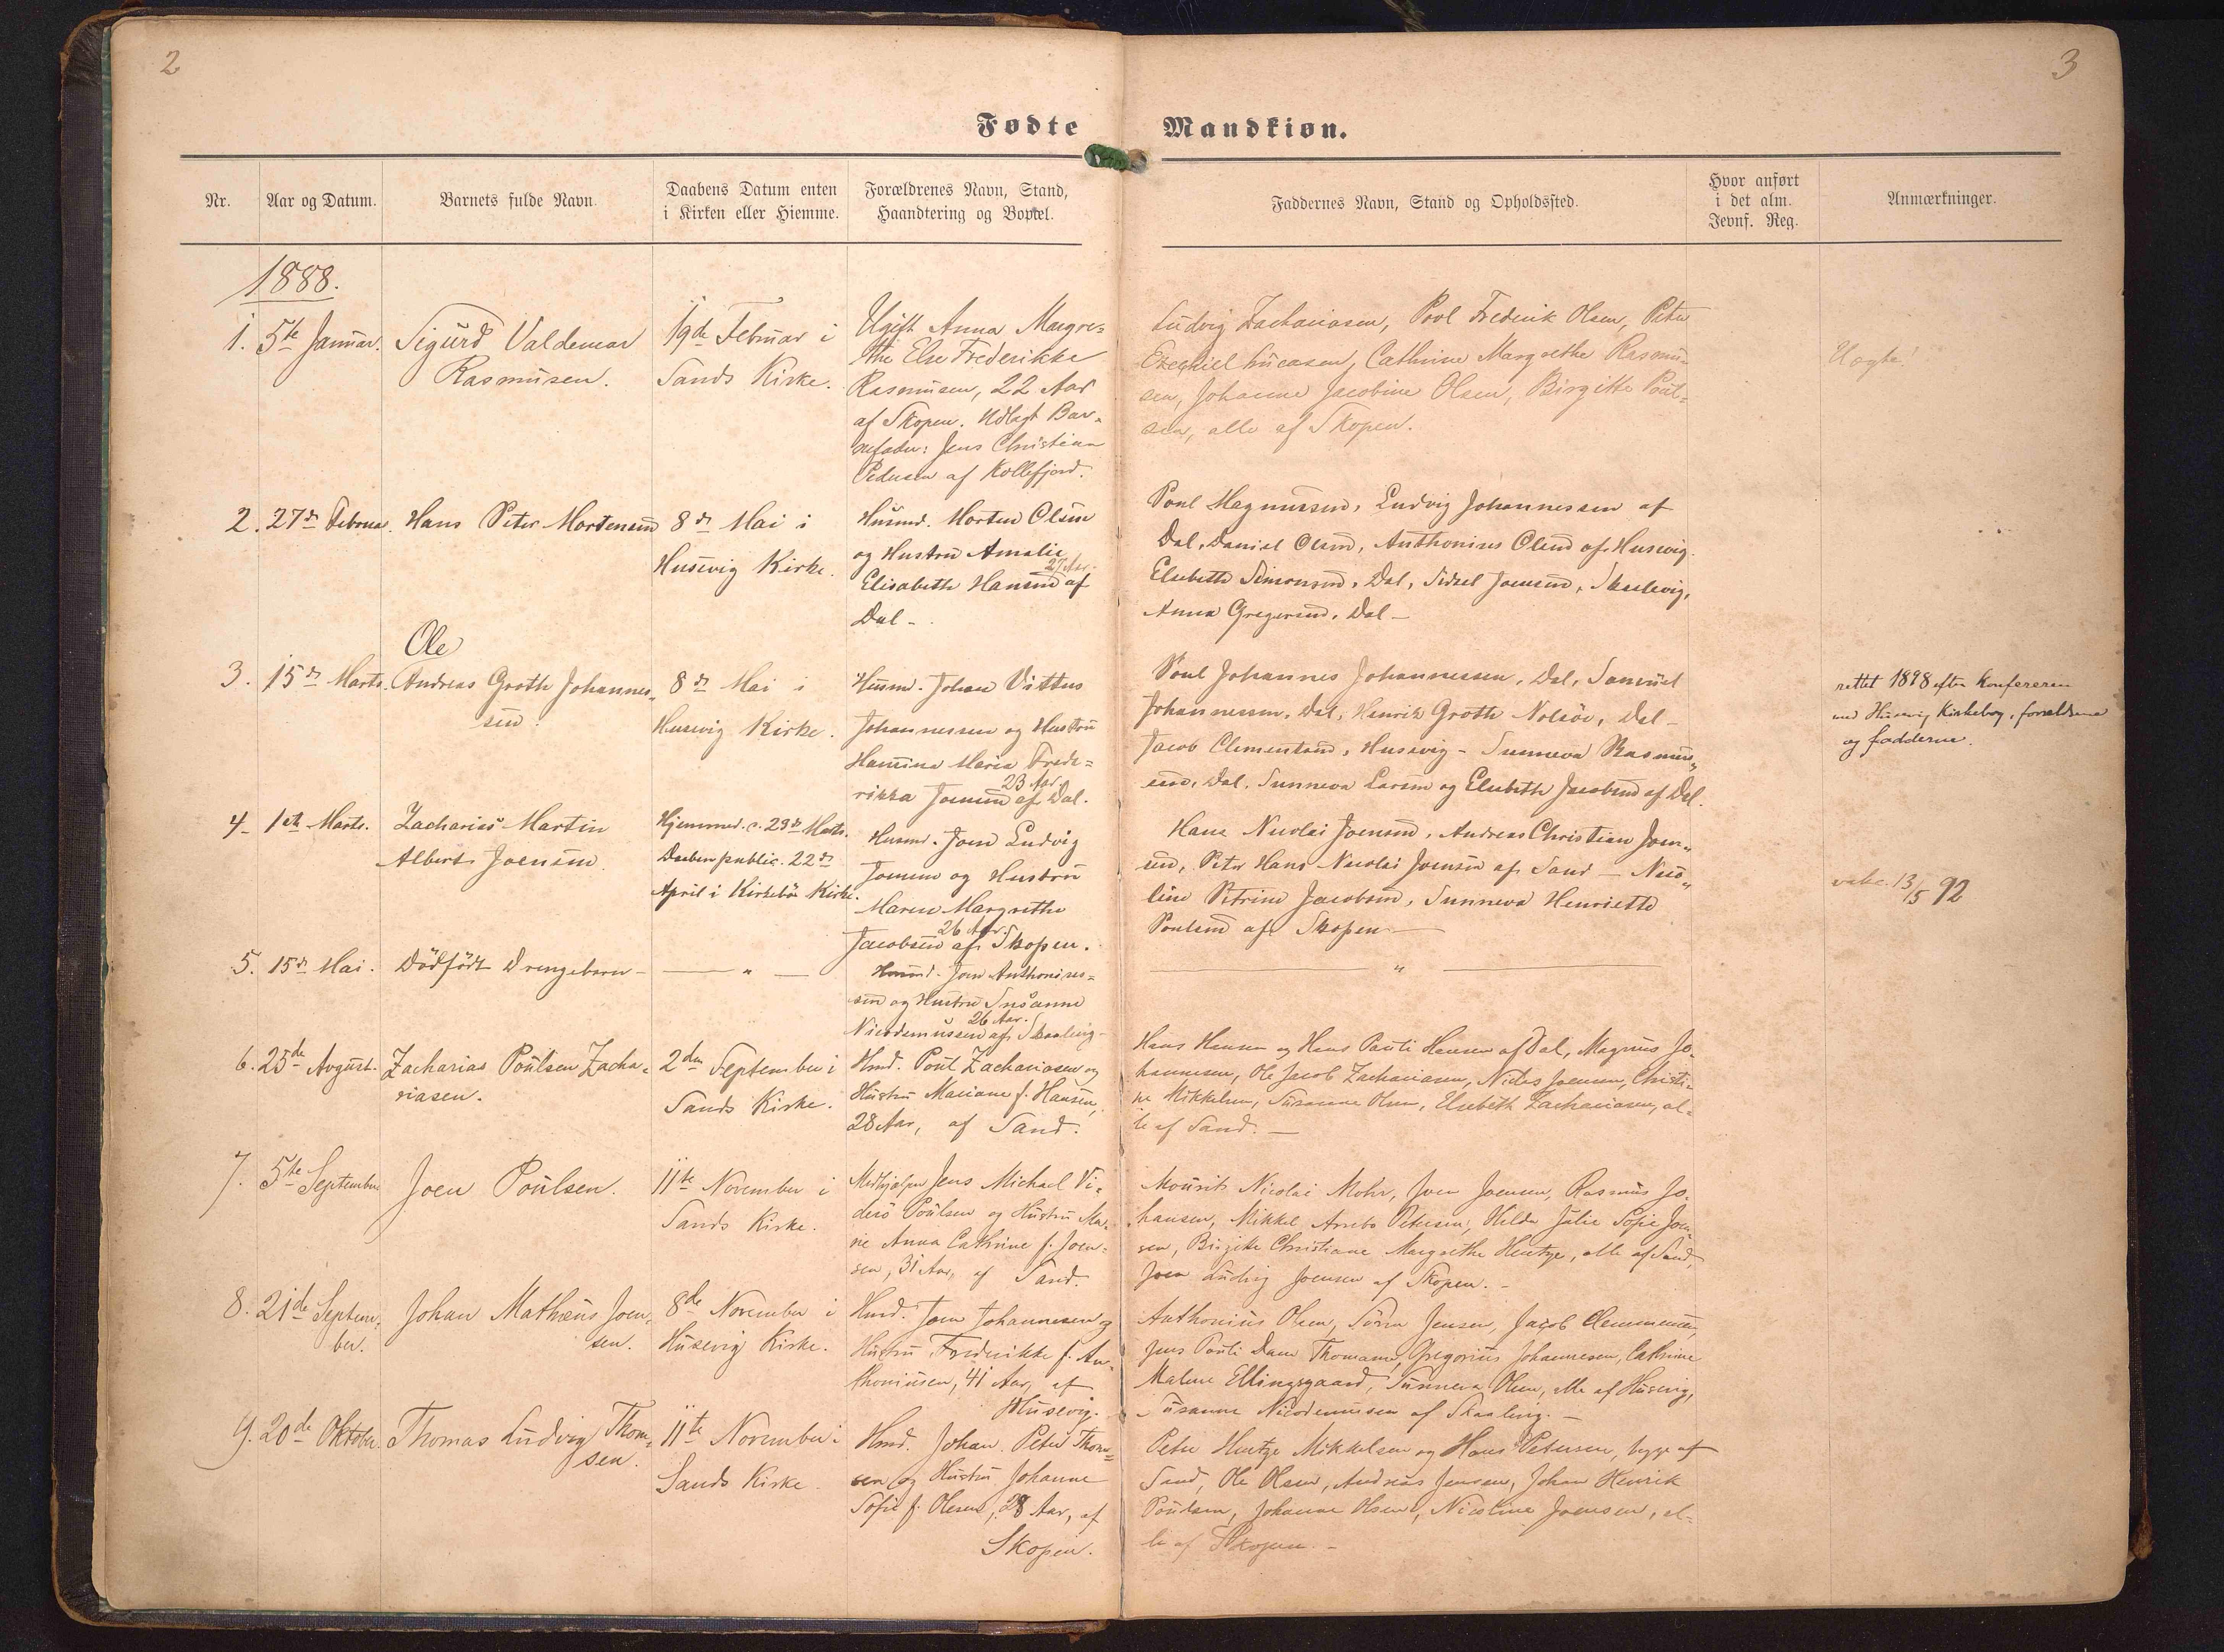 2
3
Fødte
Mandkiøn.
Nr.
Aar og Datum.
Barnets fulde Navn.
Daabens Datum enten
i Kirken eller Hiemme.
Forældrenes Navn, Stand,
Haandtering og Bopæl.
Faddernes Navn, Stand og Opholdssted.
Hvor anført
i det alm.
Jevnf. Reg.
Anmærkninger.
1888.
1.
5te Januar.
Sigurd Valdemar
Rasmusen.
19de Februar i
Sands Kirke.
Ugift Anna Margre=
the Else Frederikke
Rasmusen, 22 Aar
af Skopen. Udlagt Bar=
nefader: Jens Christian
Pedersen af Kollefjord.
Ludvig Zachariasen, Povl Frederik Olsen, Peter
Ezechiel Lucasen, Cathrine Margrethe Rasmu=
sen, Johanne Jacobine Olsen, Birgitte Poul=
sen, alle af Skopen.
Uægte!
2.
27de Februar.
Hans Peter Mortensen
8de Mai i
Husevig Kirke.
Husmd. Morten Olsen
og Hustru Amalie
27 Aar.
Elisabeth Hansen af
Dal -
Poul Magnussen, Ludvig Johannessen af
Dal, Daniel Olsen, Anthonius Olsen af Husevig.
Elsebeth Simonsen, Dal, Sidsel Joensen, Skaalevig,
Anna Gregersen, Dal -
3.
15de Marts.
Ole
Andreas Groth Johannes=
sen.
8de Mai i
Husevig Kirke.
Husmd. Johan Vittus
Johannessen og Hustru
Hansina Maria Frede=
23 Aar.
rikka Joensen af Dal.
Poul Johannes Johannessen, Dal, Samuel
Johannessen, Dal, Henrik Groth Nolsöe, Dal -
Jacob Clementsen, Husevig - Sunneva Rasmus=
sen, Dal, Sunneva Larsen og Elsebeth Jacobsen af Dal.
rettet 1898 efter Konfereren
med Husevig Kirkebog, forældrene
og fadderne.
4.
1ste Marts.
Zacharias Martin
Albert Joensen.
Hjemmed. d. 29de Marts.
Daaben public. 22de
April i Kirkebö Kirke.
Husmd. Joen Ludvig
Joensen og Hustru
Maren Margrethe
26 Aar.
Jacobsen af Skopen.
Hans Nicolai Joensen, Andreas Christian Joen=
sen, Peter Hans Nicolai Joensen af Sand - Nico=
line Petrine Jacobsen, Sunneva Henriette
Poulsen af Skopen -
vakc. 13/5 92
5.
15de Mai.
Dödfödt Drengebarn -
- " -
Husmd. Joen Anthonius=
sen og Hustru Susanne
26 Aar.
Nicodemussen af Skaalevig -
- " -
6.
25de August.
Zacharias Poulsen Zacha=
riasen.
2den September i
Sands Kirke.
Hmd. Poul Zachariasen og
Hustru Mariane f. Hansen,
28 Aar, af Sand.
Hans Hansen og Hans Pauli Hansen af Dal, Magnus Jo=
hannesen, Ole Jacob Zachariasen, Niclas Joensen, Christi=
ne Mikkelsen, Susanne Olsen, Elsebeth Zachariasen, al=
le af Sand. -
7.
5te September
Joen Poulsen.
11te November i
Sands Kirke.
Medhjælper Jens Michael Vi=
derö Poulsen og Hustru Ma=
rie Anna Cathrine f. Joen=
sen, 31 Aar, af Sand.
Mourits Nicolai Mohr, Joen Joensen, Rasmus Jo=
hansen, Mikkel Arrebo Petersen, Hilda Julie Sofie Joen=
sen, Birgitte Christiane Margrethe Hentze, alle af Sand,
Joen Ludvig Joensen af Skopen. -
8.
21de Septem=
ber.
Johan Mathæus Joen=
sen.
8de November i
Husevig Kirke.
Hmd. Joen Johannesen og
Hustru Frederikke f. An=
thoniusen, 41 Aar, af
Husevig.
Anthonius Olsen, Sörin Jensen, Jacob Clemmensen,
Jens Pauli Dam Thomasen, Gregorius Johannesen, Cathrine
Malene Ellingsgaard, Sunneva Olsen, alle af Husevig,
Susanne Nicodemusen af Skaalevig. -
9.
20de Oktober.
Thomas Ludvig Thom=
sen.
11te November i
Sands Kirke.
Hmd. Johan Peter Thom=
sen og Hustru Johanne
Sofie f. Olsen, 28 Aar, af
Skopen.
Peter Hentze Mikkelsen og Hans Petersen, begge af
Sand, Ole Olsen, Andreas Jensen, Johan Henrik
Poulsen, Johanne Olsen, Nicoline Joensen, al=
le af Skopen. -